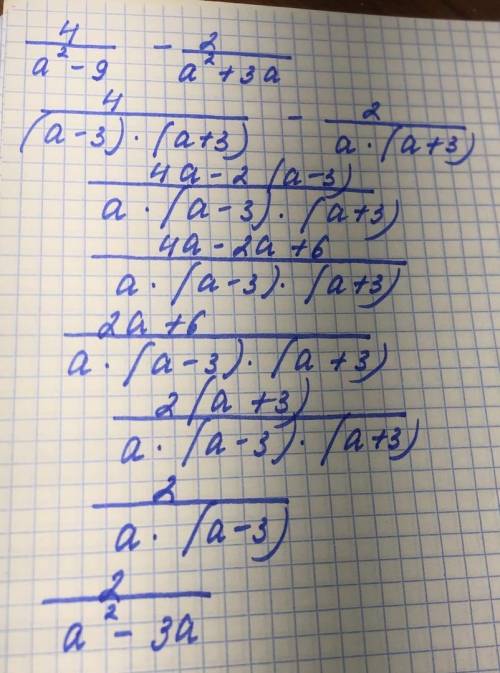 4/(a² - 9) - 2/(a² + 3a)
4/((a-3)·(a+3)) - 2/(a·(a+3))
(4a - 2(a-3))/(a·(a-3)·(a+3))
(4a - 2a + 6)/(a·(a-3)·(a+3))
(2a + 6)/(a·(a-3)·(a+3))
2(a+3)/(a·(a-3)·(a+3))
2/(a·(a-3))
2/(a² - 3a)